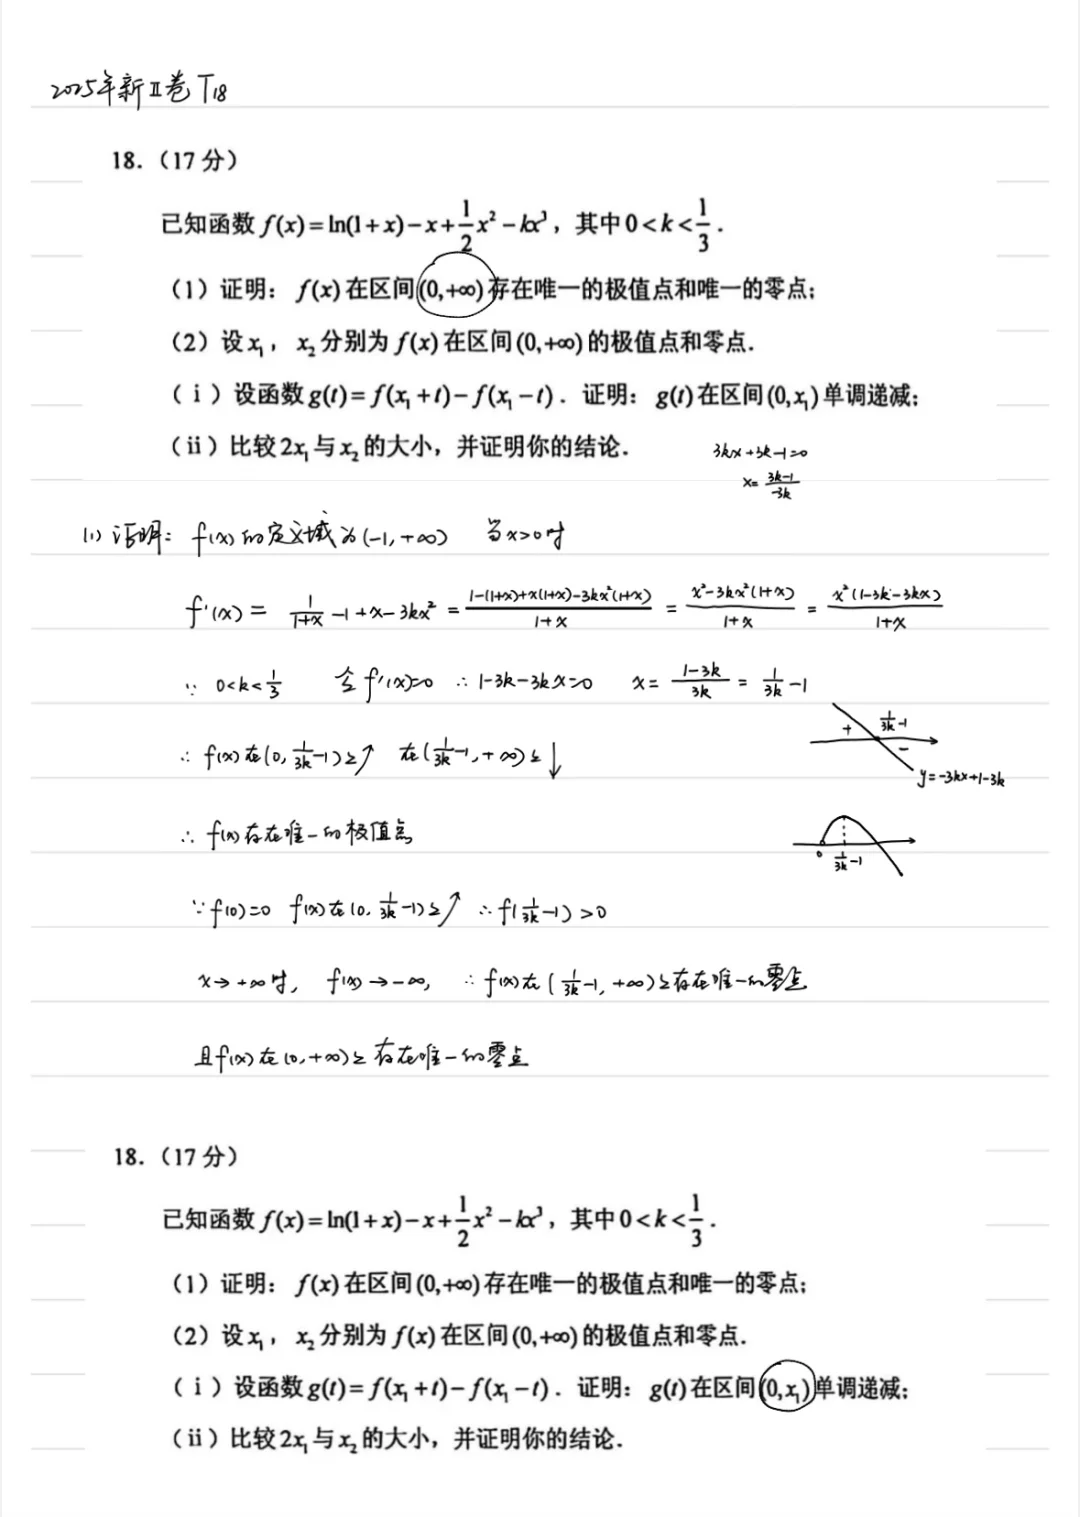 2025年新Ⅱ卷 T18
18.（17 分）
已知函数 f(x)=ln(1+x)-x+\frac{1}{2}x²-kx³，其中 0<k<\frac{1}{3}.
（1）证明：f(x)在区间(0,+∞)存在唯一的极值点和唯一的零点；
（2）设x₁，x₂分别为 f(x)在区间(0,+∞)的极值点和零点.
（ⅰ）设函数g(t)=f(x₁+t)-f(x₁-t). 证明：g(t)在区间(0,x₁)单调递减；
（ⅱ）比较2x₁与x₂的大小，并证明你的结论.
3kx+3k-1=0
x=\frac{3k-1}{-3k}
(1) 证明：f(x)的定义域为(-1,+∞) 当x>0时
f'(x)=\frac{1}{1+x}-1+x-3kx²=\frac{1-(1+x)+x(1+x)-3kx²(1+x)}{1+x}=\frac{x²-3kx²(1+x)}{1+x}=\frac{x²(1-3k-3kx)}{1+x}
∵ 0<k<\frac{1}{3} 令f'(x)=0 ∴1-3k-3kx=0 x=\frac{1-3k}{3k}=\frac{1}{3k}-1
+ \frac{1}{3k}-1
-
∴ f(x)在(0,\frac{1}{3k}-1)上↗ 在(\frac{1}{3k}-1,+∞)上↓
y=-3kx+1-3k
∴ f(x)存在唯一的极值点
0 \frac{1}{3k}-1
∵f(0)=0 f(x)在(0,\frac{1}{3k}-1)上↗ ∴f(\frac{1}{3k}-1)>0
x→+∞时, f(x)→-∞, ∴f(x)在(\frac{1}{3k}-1,+∞)上存在唯一的零点
且f(x)在(0,+∞)上存在唯一的零点
18.（17 分）
已知函数 f(x)=ln(1+x)-x+\frac{1}{2}x²-kx³，其中 0<k<\frac{1}{3}.
（1）证明：f(x)在区间(0,+∞)存在唯一的极值点和唯一的零点；
（2）设x₁，x₂分别为 f(x)在区间(0,+∞)的极值点和零点.
（ⅰ）设函数g(t)=f(x₁+t)-f(x₁-t). 证明：g(t)在区间(0,x₁)单调递减；
（ⅱ）比较2x₁与x₂的大小，并证明你的结论.